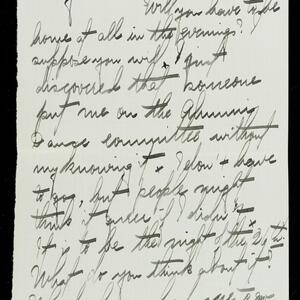 Will you have to be
home at all in the evenings? I
suppose you will. I just
discovered that someone
put me on the Alumni
Dance committee without
my knowing it. I don't have
to go, but people might
think it queer if I didn't.
It is to be the night of the 30th.
What do you think about it?